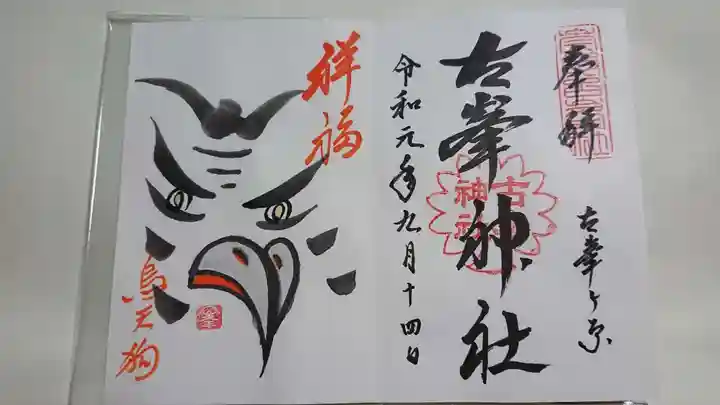 奉拝
古峯ヶ原
古峯神社
古峯神社
令和元年九月十四日
祥福
烏天狗